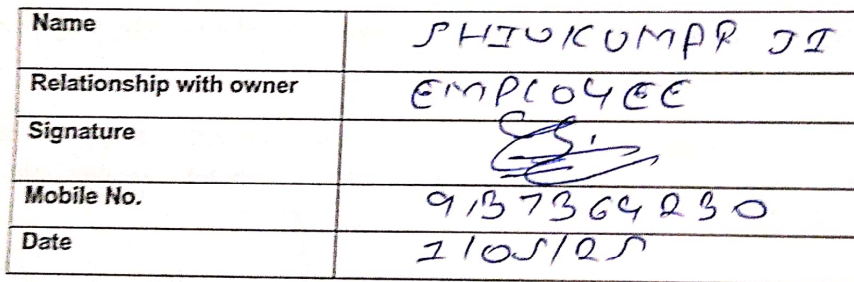 Name SHIVKUMAR JI
Relationship with owner EMPLOYEE
Signature
Mobile No. 9137364230
Date 1/05/25